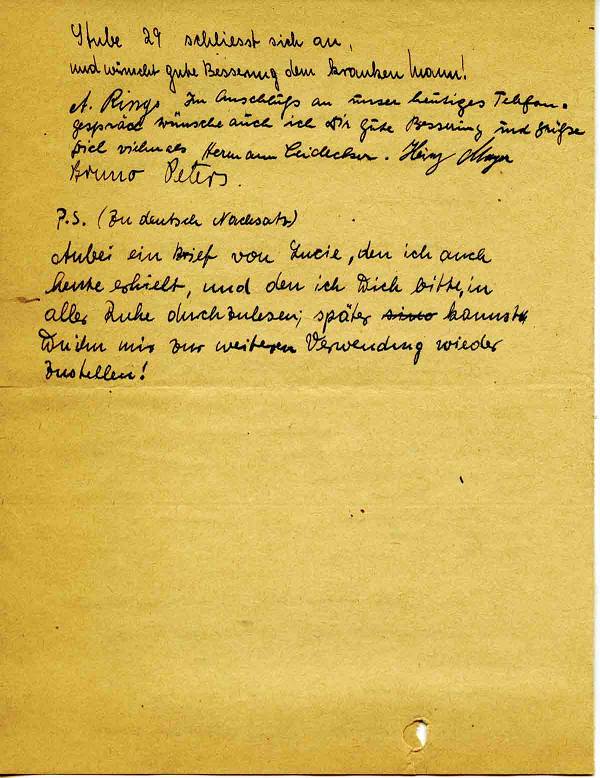 Stube 29 schliesst sich an,
und wünscht gute Besserung dem kranken Mann!
A. Ringo Im Anschluß an unser heutiges Telefon-
gespräch wünsche auch ich Dir gute Besserung und grüße
Dich vielmals Hermann Leidecker. Heinz Mayer
Bruno Peters.
P.S. (Zu deutsch Nachsatz)
Anbei ein Brief von Lucie, den ich auch
heute erhielt, und den ich Dich bitte, in
aller Ruhe durchzulesen; später kannst
Du ihn mir zur weiteren Verwendung wieder
zustellen!